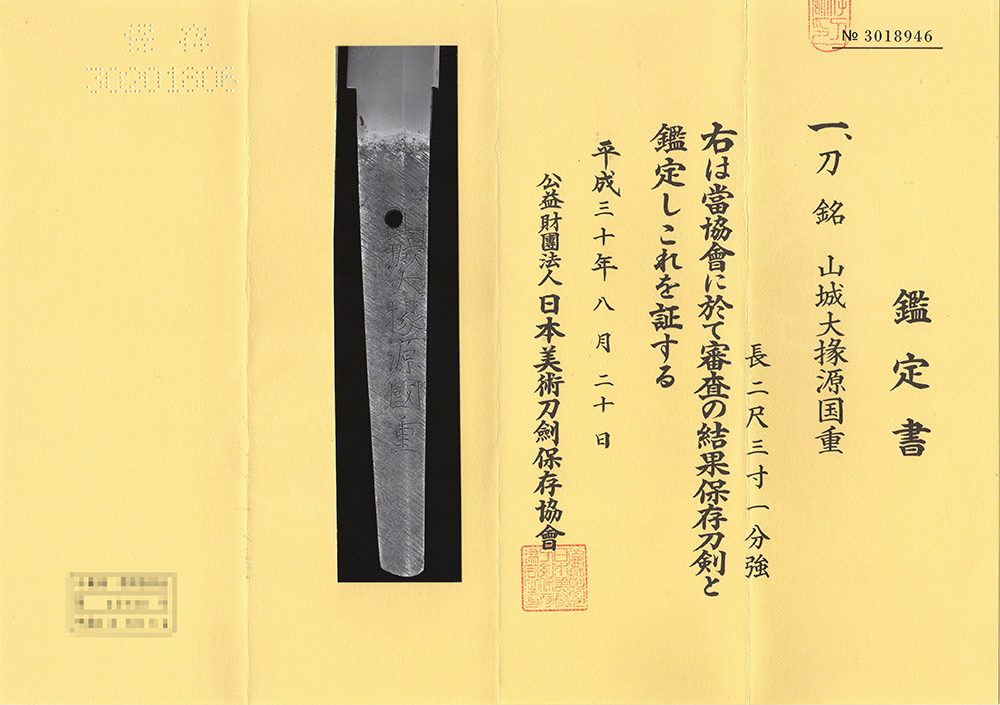 № 3018946
鑑定書
一、刀 銘 山城大掾源国重
長二尺三寸一分強
右は當協會に於て審査の結果保存刀剣と
鑑定しこれを証する
平成三十年八月二十日
公益財團法人 日本美術刀劍保存協會
城大掾源國重
保存
30201806